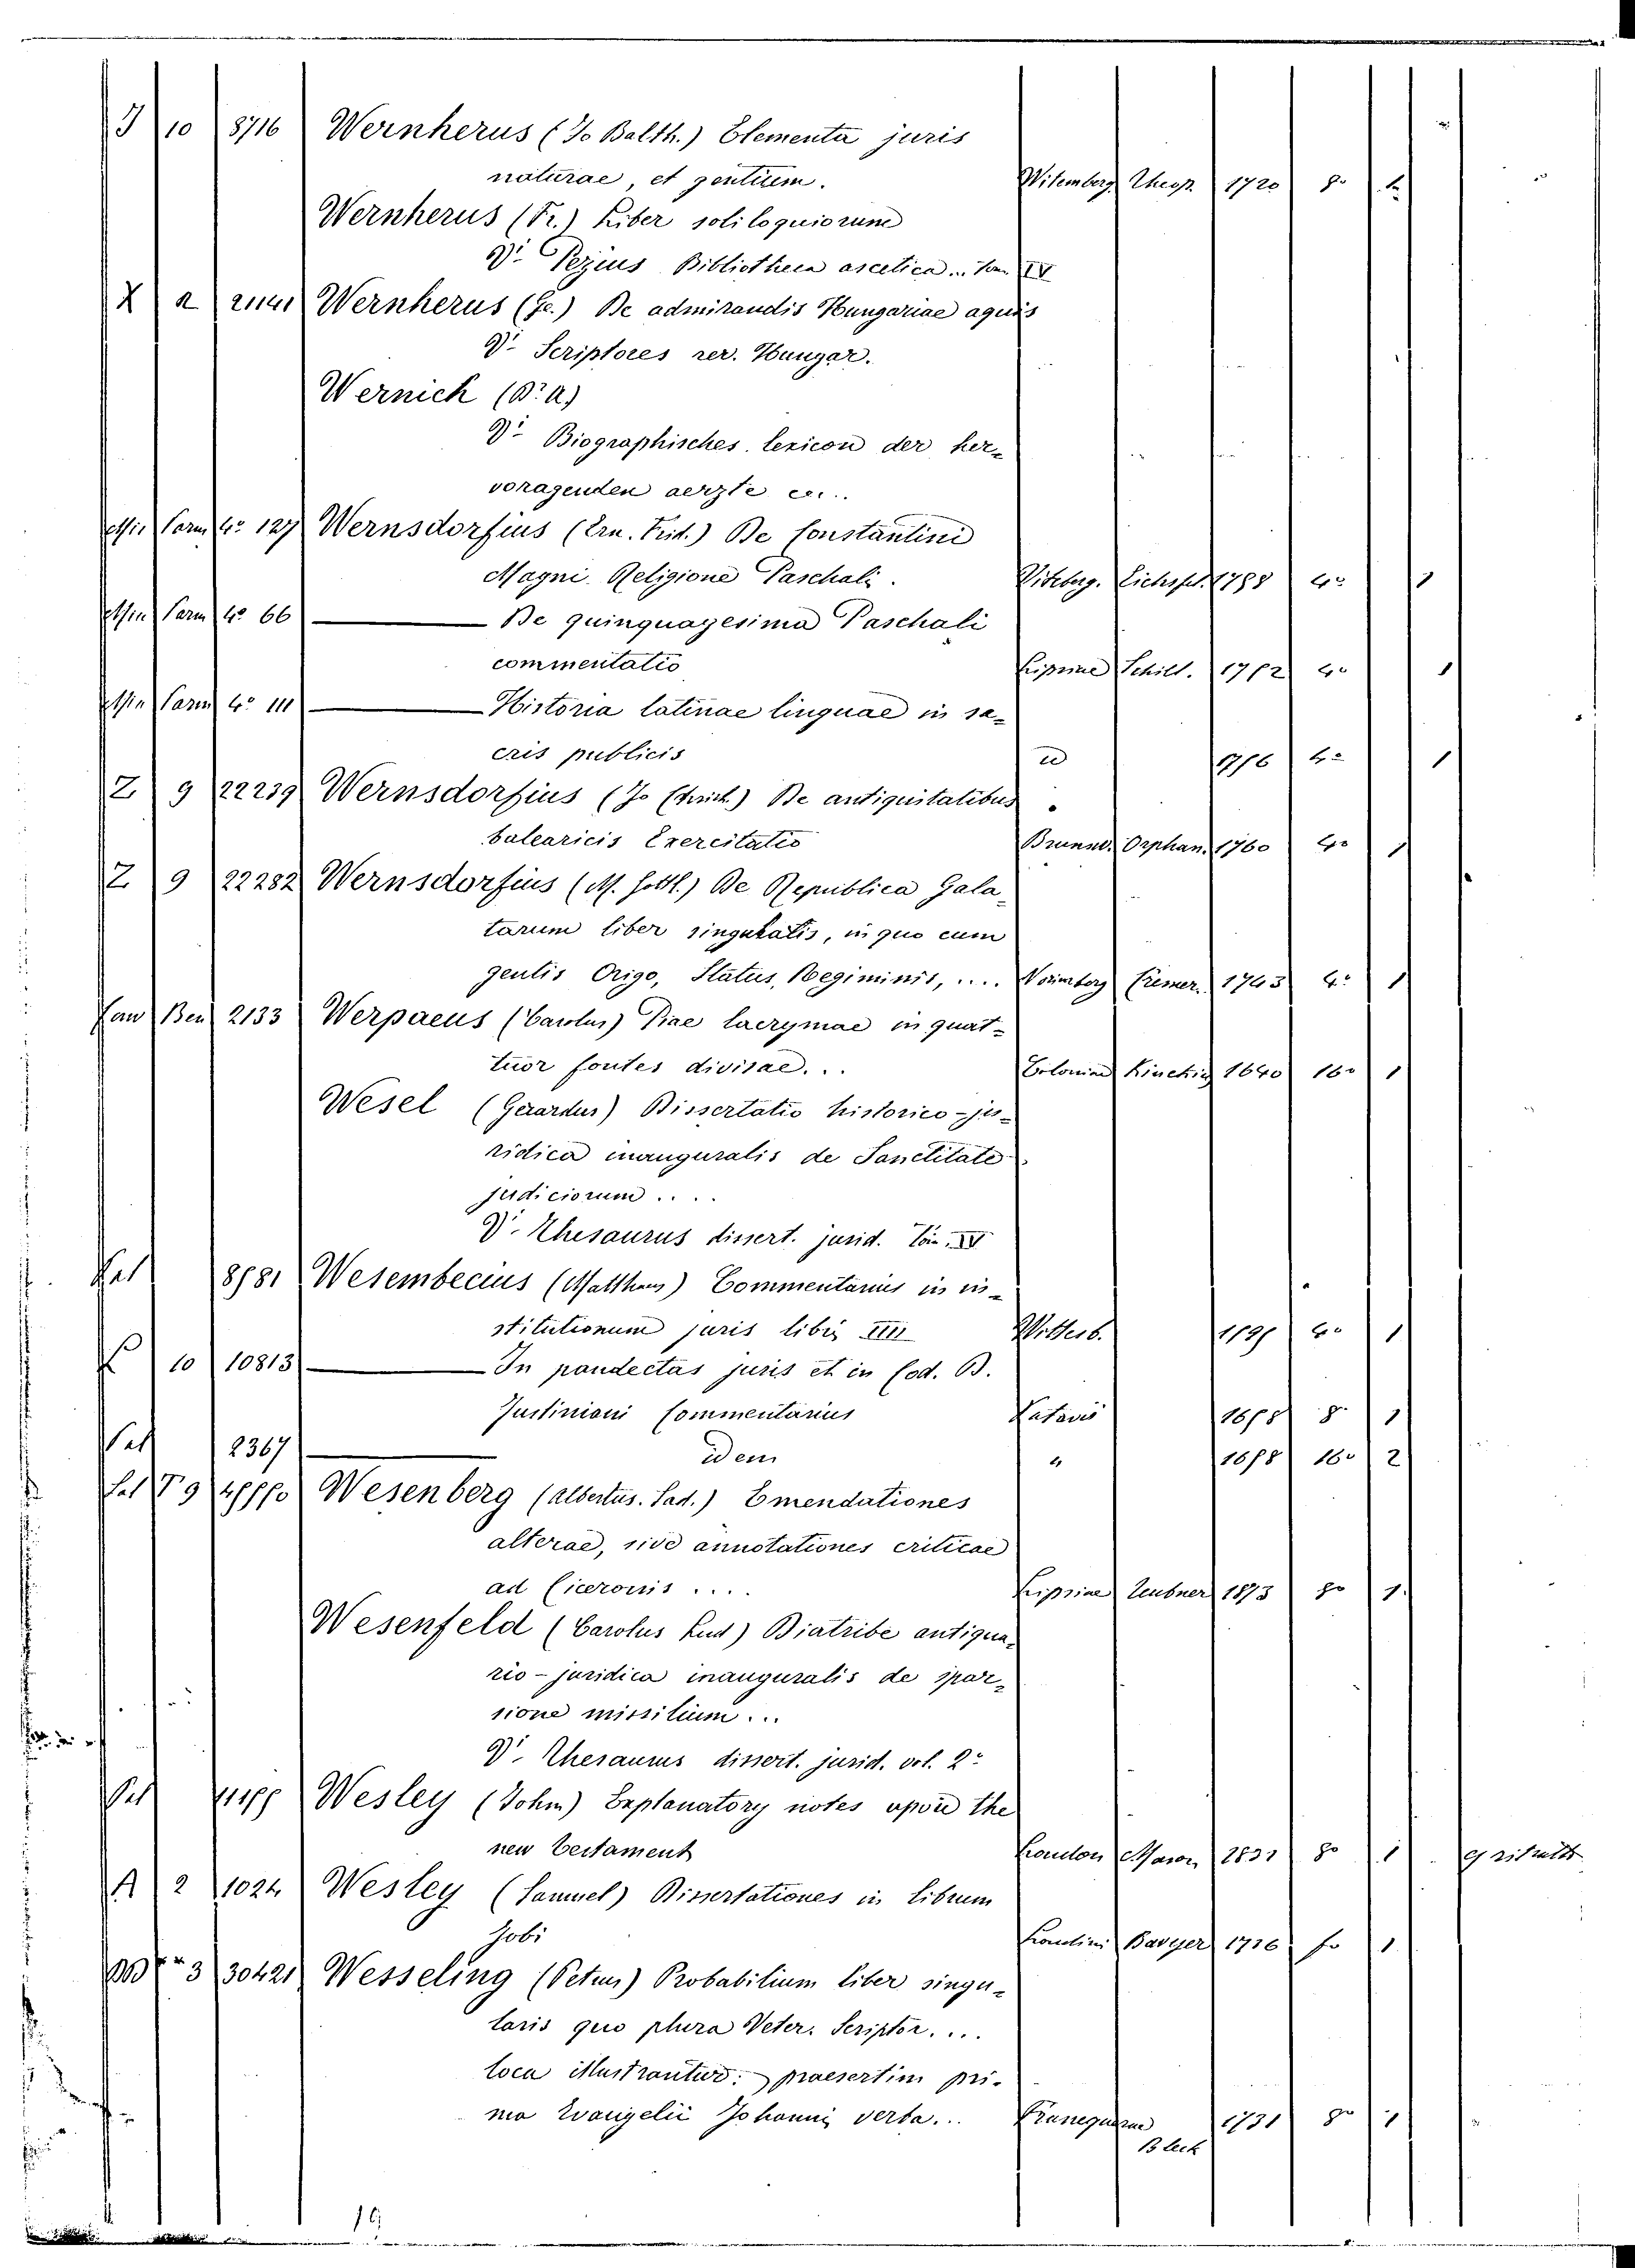 J 10 8716 Wernherus (Jo Balth.) Elementa juris
naturae, et gentium. Witemberg Theop. 1720 8º 1
Wernherus (Fr.) Liber soliloquiorum
Vi Pezius Bibliotheca ascetica... Tom IV
X 2 21141 Wernherus (Ge.) De admirandis Hungariae aquis
Vi Scriptores rer. Hungar.
Wernich (Dr A.)
Vi Biographisches lexicon der her-
voragenden aerzte
127 Wernsdorfius (Ern. Frid.) De Constantini
Magni Religione Paschali. Viteberg. 4º 1
4º 66 — De quinquagesima Paschali
commentatio Lipsiae 4º 1
4º 111 — Historia latinae linguae in sa-
cris publicis 4º 1
Z 9 22239 Wernsdorfius (Jo Christ.) De antiquitatibus
balearicis Exercitatio Brunsv. Orphan. 1760 4º 1
Z 9 22282 Wernsdorfius (M. Gottl.) De Republica Gala-
tarum liber singularis, in quo cum
gentis Origo, Status, Regiminis, .... Norimberg Cremer. 1743 4º 1
Ben 2133 Werpaeus (Carolus) Piae lacrymae in quat-
tuor fontes divisae... Coloniae Kinckig 1640 16º 1
Wesel (Gerardus) Dissertatio historico-ju-
ridica inauguralis de Sanctitate
judiciorum ....
Vi Thesaurus dissert. jurid. Tom. IV
8581 Wesembecius (Matthaeus) Commentarius in in-
stitutionum juris libri IIII Witterb. 4º 1
10 10813 — In pandectas juris et in Cod. D.
Justiniani Commentarius 8º 1
2367 — idem " 16º 2
Wesenberg (Albertus. Sad.) Emendationes
alterae, sive annotationes criticae
ad Ciceronis .... Lipsiae Teubner 1873 8º 1
Wesenfeld (Carolus Lud) Diatribe antiqua-
rio-juridica inauguralis de spar-
sione missilium...
Vi Thesaurus dissert. jurid. vol. 2º
Wesley (John) Explanatory notes upon the
new testament London Mason 1831 8º 1
A 2 1024 Wesley (Samuel) Dissertationes in librum
Jobi Londini Bavyer 1736 fº 1
3 30421 Wesseling (Petrus) Probabilium liber singu-
laris quo plura Veter. Scriptor....
loca illustrantur: praesertim pri-
ma Evangelii Johannis verba... Franequerae Bleck 1731 8º 1
19